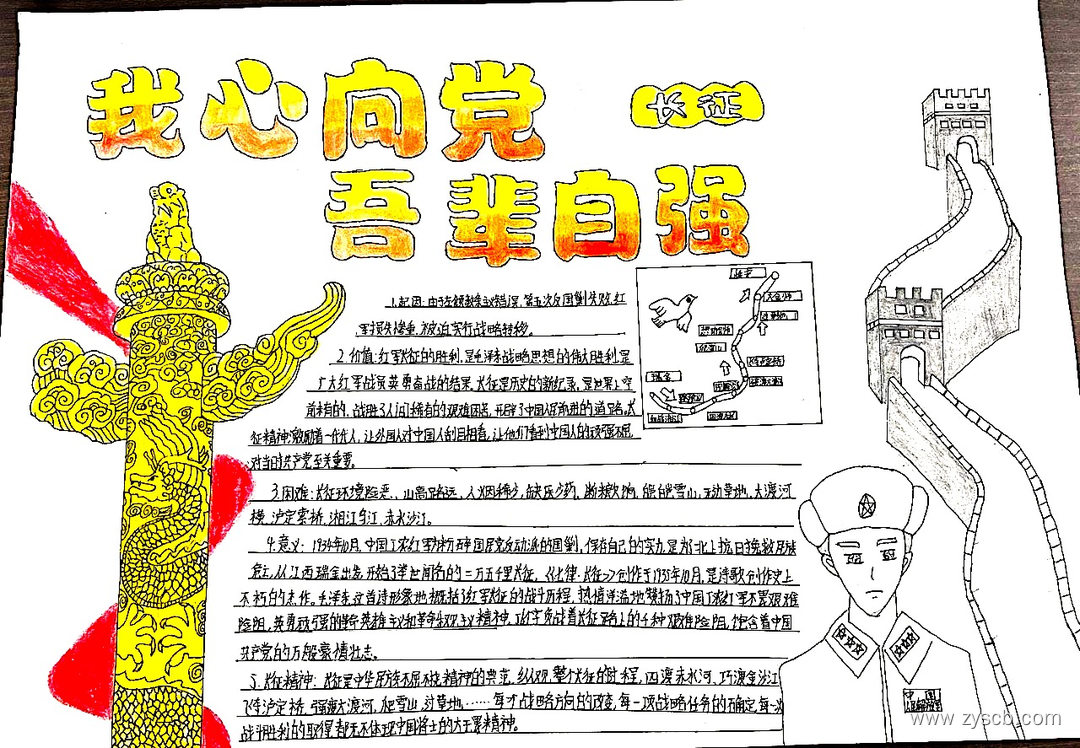 我心向党
长征
吾辈自强
1.起因:由于左倾教条主义错误,第五次反围剿失败,红
军损失惨重,被迫实行战略转移。
2.价值:红军长征的胜利,是毛泽东战略思想的伟大胜利,是
广大红军战员英勇奋战的结果,长征是历史的新纪录,是世界上空
前未有的,战胜了人间稀有的艰难困苦,开辟了中国人民前进的道路,长
征精神激励着一代代人,让外国人对中国人刮目相看,让他们看到中国人的顽强不屈
对当时共产党至关重要。
3.困难:长征环境险恶、山高路远、人烟稀少,缺医少药,断粮饮,能爬雪山,过草地,大渡河
横,泸定索桥,湘江乌江,赤水沙江。
4.意义:1934年10月,中国工农红军为粉碎国民党反动派的围剿,保存自己的实力,是北上抗日挽救民族
危亡,从江西瑞金出发,开始了举世闻名的二万五千里长征,《七律·长征》创作于1935年10月,是诗歌创作史上
不朽的杰作,毛泽东这首诗形象地概括了红军长征的战斗历程,热情洋溢地赞扬了中国工农红军不畏艰难
险阻,英勇顽强的革命英雄主义和革命乐观主义精神,红军负战着长征路上的千种艰难险阻,饱含着中国
共产党的万般豪情壮志。
5.长征精神:长征是中华民族不屈不挠精神的典范,纵观整个长征的过程,四渡赤水河,巧渡金沙江
飞夺泸定桥,强渡大渡河,爬雪山,过草地……每个战略方向的改变,每一项战略任务的确定,每一次
战斗胜利的取得,都无不体现中国将士的大无畏精神。
延安
大会师
瑞金
中国
www.zyscb.com